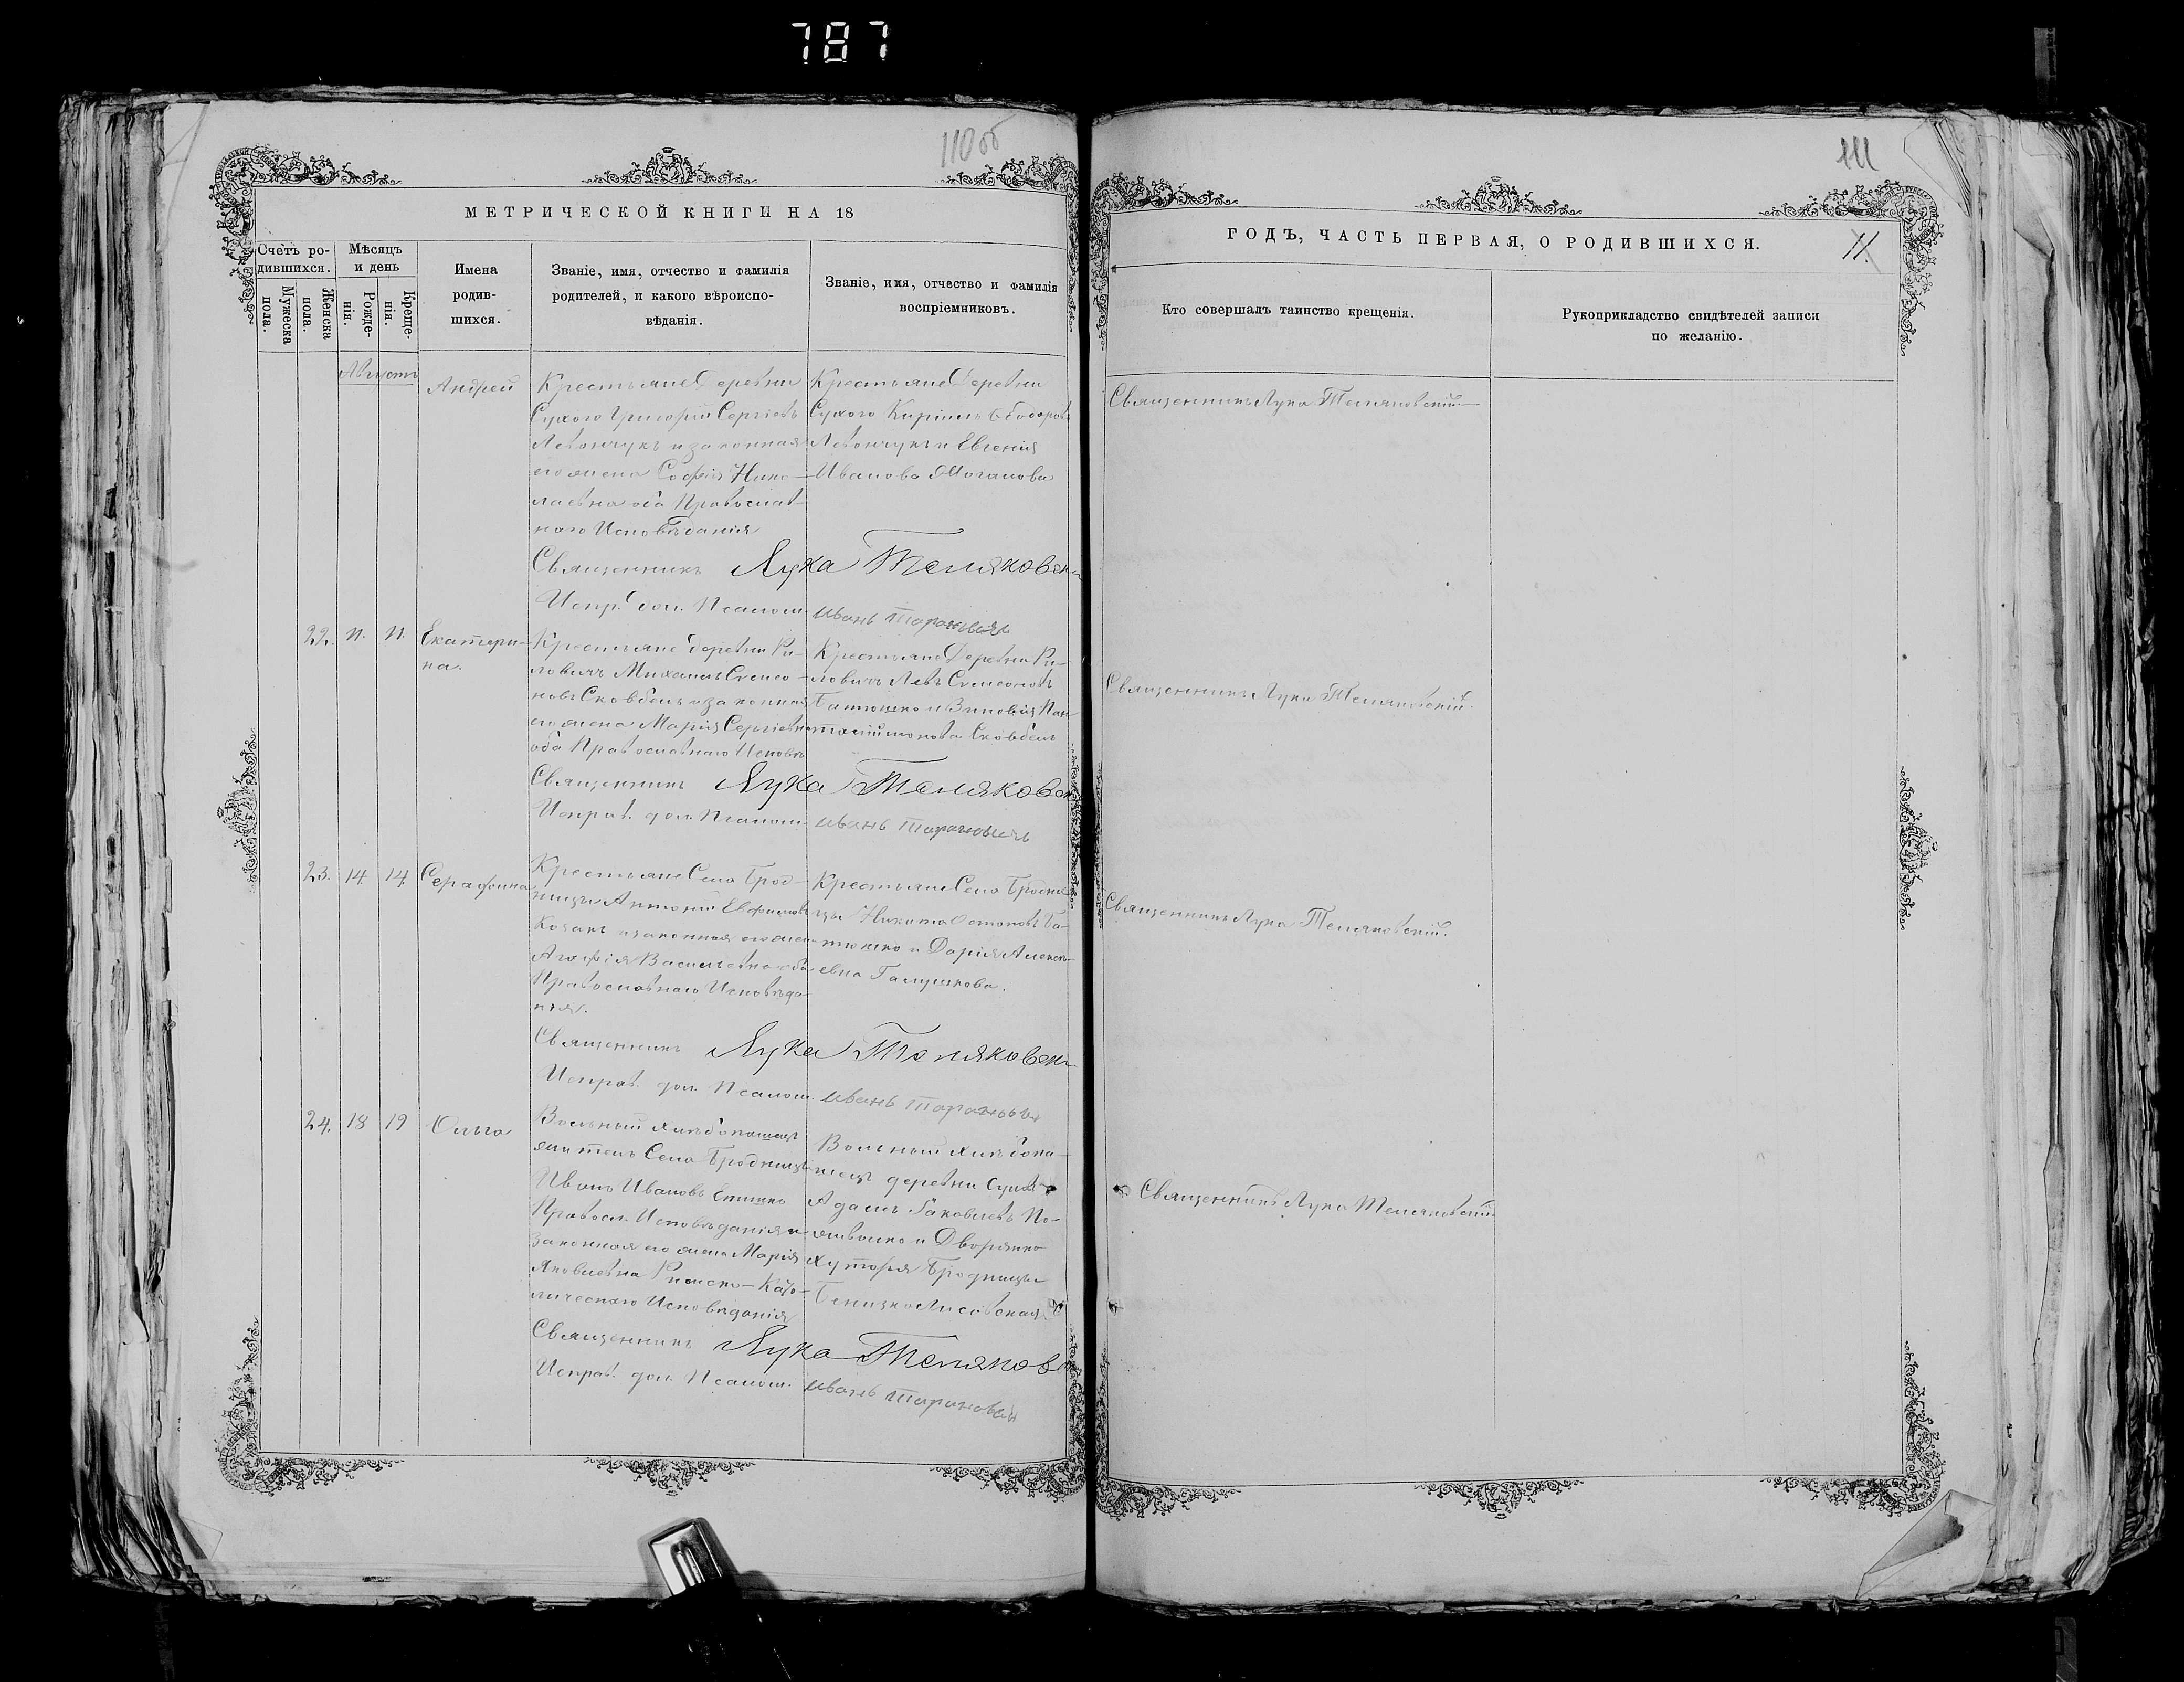 787
110об
МЕТРИЧЕСКОЙ КНИГИ НА 18
Счетъ ро-
дившихся.
Мужеска
пола.
Женска
пола.
Мѣсяцъ
и день
Рожде-
нія.
Креще-
нія.
Имена
родив-
шихся.
Званіе, имя, отчество и фамилія
родителей, и какого вѣроиспо-
вѣданія.
Званіе, имя, отчество и фамилія
воспріемниковъ.
Августъ
Андрей
Крестьяне Деревни
Сухого Григорій Сергіевъ
Левончукъ и законная
его жена Софія Нико-
лаевна оба Православ-
наго Исповѣданія
Крестьяне Деревни
Сухого Кирилъ Ѳеодоровъ
Левончукъ и Евгенія
Иванова
Священникъ Лука Теляковскі
Испр. дол. Псалом. Иванъ Тарановичъ
22. 11. 11. Екатери-
на.
Крестьяне деревни Ри-
ловичъ Михаилъ Симео-
новъ Сковбель и законная
его жена Марія Сергіевна
оба Православнаго Исповѣ
Крестьяне Деревни Ри-
ловичъ Левъ Симеоновъ
Батюшко и Зиновія Пан-
телеймонова Сковбель
Священникъ Лука Теляковск
Исправ. дол. Псалом. Иванъ Тарановичъ
23. 14 14 Серафима
Крестьяне Села Брод-
ницы Антоній Евфимовъ
Козакъ и законная его жен
Агафія Васильевна оба
Православнаго Исповѣда-
нія.
Крестьяне Села Бродни-
цы Никита Остаповъ Ба-
тюшко и Дарія Алексѣ-
евна Галушкова.
Священникъ Лука Теляковскі
Исправ. дол. Псалом. Иванъ Тарановичъ
24. 18 19 Ольга
Вольный хлѣбопашецъ
житель Села Бродницы
Иванъ Ивановъ Епишко
Правосл. Исповѣданія и
законная его жена Марія
Яковлевна Римско-Като-
лическаго Исповѣданія
Вольный хлѣбопа-
шецъ деревни
Адамъ Яковлевъ По-
ливко и Дворянка
Хутора Бродницы
Лисовская
Священникъ Лука Теляковск
Исправ. дол. Псалом. Иванъ Тарановичъ
111
ГОДЪ, ЧАСТЬ ПЕРВАЯ, О РОДИВШИХСЯ.
11.
Кто совершалъ таинство крещенія.
Рукоприкладство свидѣтелей записи
по желанію.
Священникъ Лука Теляковскій.
Священникъ Лука Теляковскій.
Священникъ Лука Теляковскій.
Священникъ Лука Теляковскій.